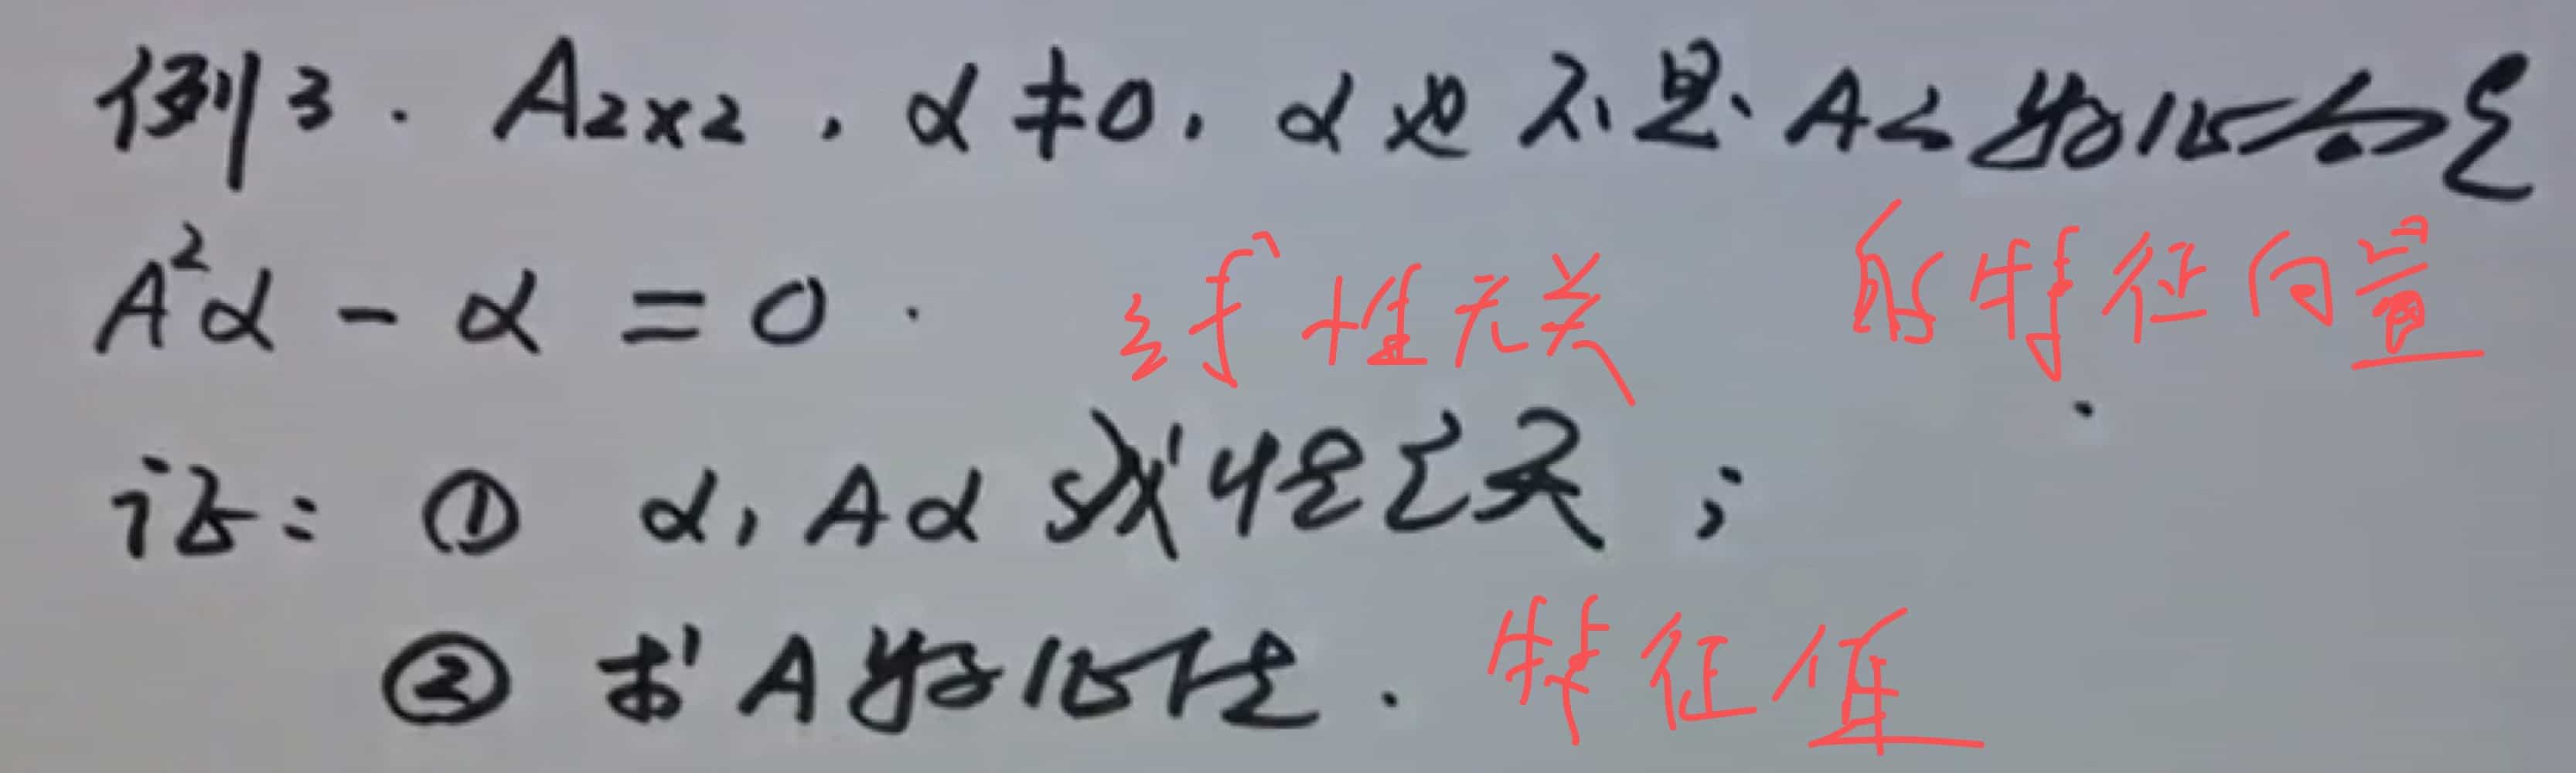 例3. A₂ₓ₂, α≠0, α也不是A之特征向量
的特征向量
A²α - α = 0.
线性无关
证: ① α, Aα 线性无关;
② 求A特征值.
特征值